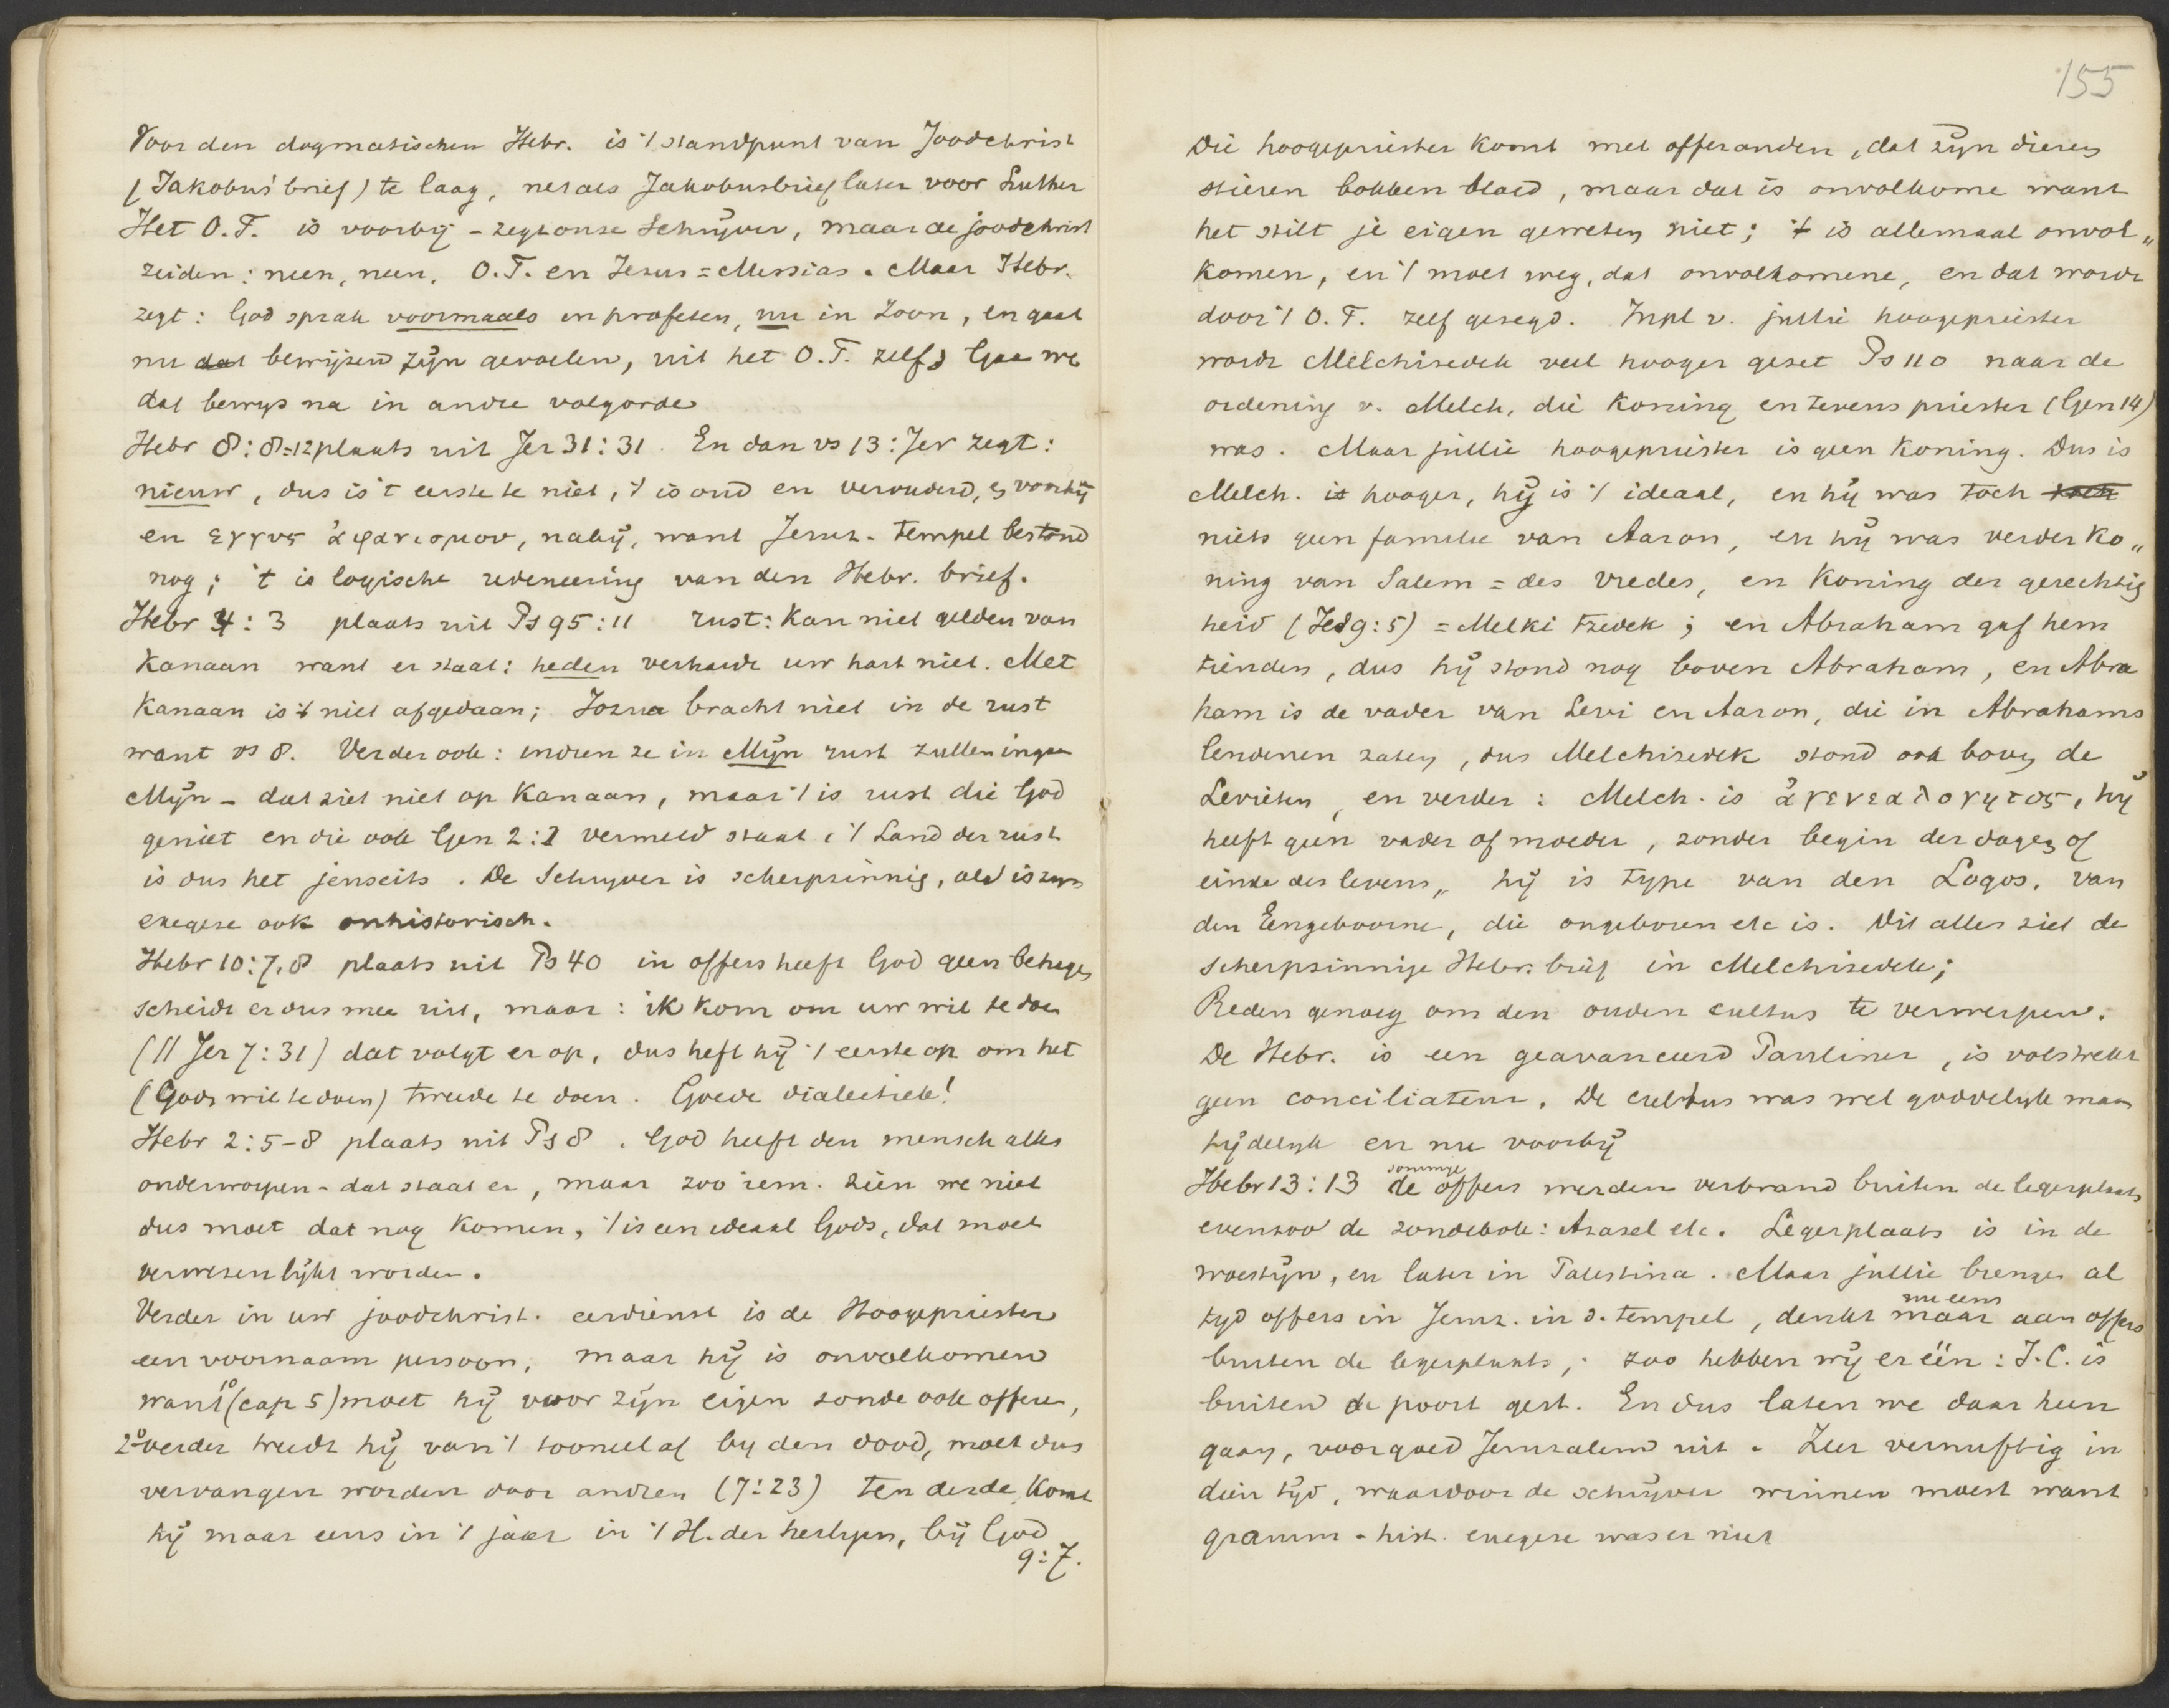 Voor den dogmatischen Hebr. is 't standpunt van Joodchrist
(Jakobus' brief) te laag, net als Jakobusbrief later voor Luther
Het O.T. is voorbij - zegt onse Schrijver, maar de joodchrist
zeiden: neen, neen, O.T. en Jezus = Messias. Maar Hebr.
zegt: God sprak voormaals in profeten, nu in Zoon, en gaat
nu dat bewijzen zijn gevoelen, uit het O.T. zelf. Gaan we
dat bewijs na in andre volgorde
Hebr 8:8-12 plaats uit Jer 31:31. En dan vs 13: Jer zegt:
nieuw, dus is 't eerste te niet, 't is oud en verouderd, en voorbij
en εγγυς ἀφανισμου, nabij, want Jeruz. tempel bestond
nog; 't is logische redeneering van den Hebr. brief.
Hebr 4:3 plaats uit Ps 95:11 rust: Kan niet gelden van
Kanaan want er staat: heden verhardt uw hart niet. Met
Kanaan is 't niet afgedaan; Jozua bracht niet in de rust
want vs 8. Verder ook: indien ze in Mijn rust zullen ingaan
Mijn - dat ziet niet op Kanaan, maar 't is rust die God
geniet en die ook Gen 2:2 vermeld staat, 't Land der rust
is dus het jenseits. De Schrijver is scherpzinnig, al is zijn
exegese ook onhistorisch.
Hebr 10:7,8 plaats uit Ps 40 in offers heeft God geen behagen
scheidt er dus mee uit, maar: ik kom om uw wil te doen
(// Jer 7:31) dat volgt er op, dus heft hij 't eerste op om het
(Gods wil te doen) tweede te doen. Goede dialectiek!
Hebr 2:5-8 plaats uit Ps 8. God heeft den mensch alles
onderworpen - dat staat er, maar zoo iem. zien we niet
dus moet dat nog komen, 't is een ideaal Gods, dat moet
verwezenlijkt worden.
Verder in uw joodchrist. eerdienst is de Hoogepriester
een voornaam persoon, maar hij is onvolkomen
want 1o (cap 5) moet hij voor zijn eigen zonde ook offeren,
2o verder treedt hij van 't tooneel af by den dood, moet dus
vervangen worden door andren (7:23) ten derde, Komt
hij maar eens in 't jaar in 't H. der heiligen, bij God
9:7.
155
Die hoogepriester komt met offeranden, dat zijn dieren
stieren bokken bloed, maar dat is onvolkome want
het stilt je eigen geweten niet; 't is allemaal onvol„
komen, en 't moet weg, dat onvolkomene, en dat wordt
door 't O.T. zelf gezegd. Inpl v. jullie hoogepriester
wordt Melchisedek veel hooger gezet Ps 110 naar de
ordening v. Melch, die Koning en tevens priester (Gen 14)
was. Maar jullie hoogepriester is geen Koning. Dus is
Melch. is hooger, hij is 't ideaal, en hij was toch toch
niets geen familie van Aaron, en hij was verder Ko„
ning van Salem = des vredes, en Koning der gerechtig
heid (Jes 9:5) = Melki tzedek; en Abraham gaf hem
tienden, dus hij stond nog boven Abraham, en Abra
ham is de vader van Levi en Aaron, die in Abrahams
lendenen zaten, dus Melchisedek stond ook boven de
Levieten, en verder: Melch. is ἀγενεαλογητος, hij
heeft geen vader of moeder, zonder begin der dagen of
einde des levens„ hij is type van den Logos, van
den Eengeboorne, die ongeboren etc is. Dit alles ziet de
scherpzinnige Hebr. brief in Melchisedek;
Reden genoeg om den ouden cultus te verwerpen.
De Hebr. is een geavanceerd Pauliner, is volstrekt
geen conciliateur. De cultus was wel goddelijk maar
tijdelijk en nu voorbij
Hebr 13:13 de sommige offers werden verbrand buiten de legerplaats
evenzoo de zondebok: Azasel etc. Legerplaats is in de
woestijn, en later in Palestina. Maar jullie brengen al
tijd offers in Jeruz. in d. tempel, denkt maar nu eens aan offers
buiten de legerplaats, zoo hebben wij er één: J.C. is
buiten de poort gest. En dus laten we daar heen
gaan, voorgoed Jeruzalem uit. Zeer vernuftig in
dien tijd, waardoor de schrijver winnen moest want
gramm-hist. exegese was er niet